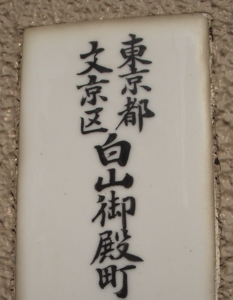 東京都
文京区
白山御殿町